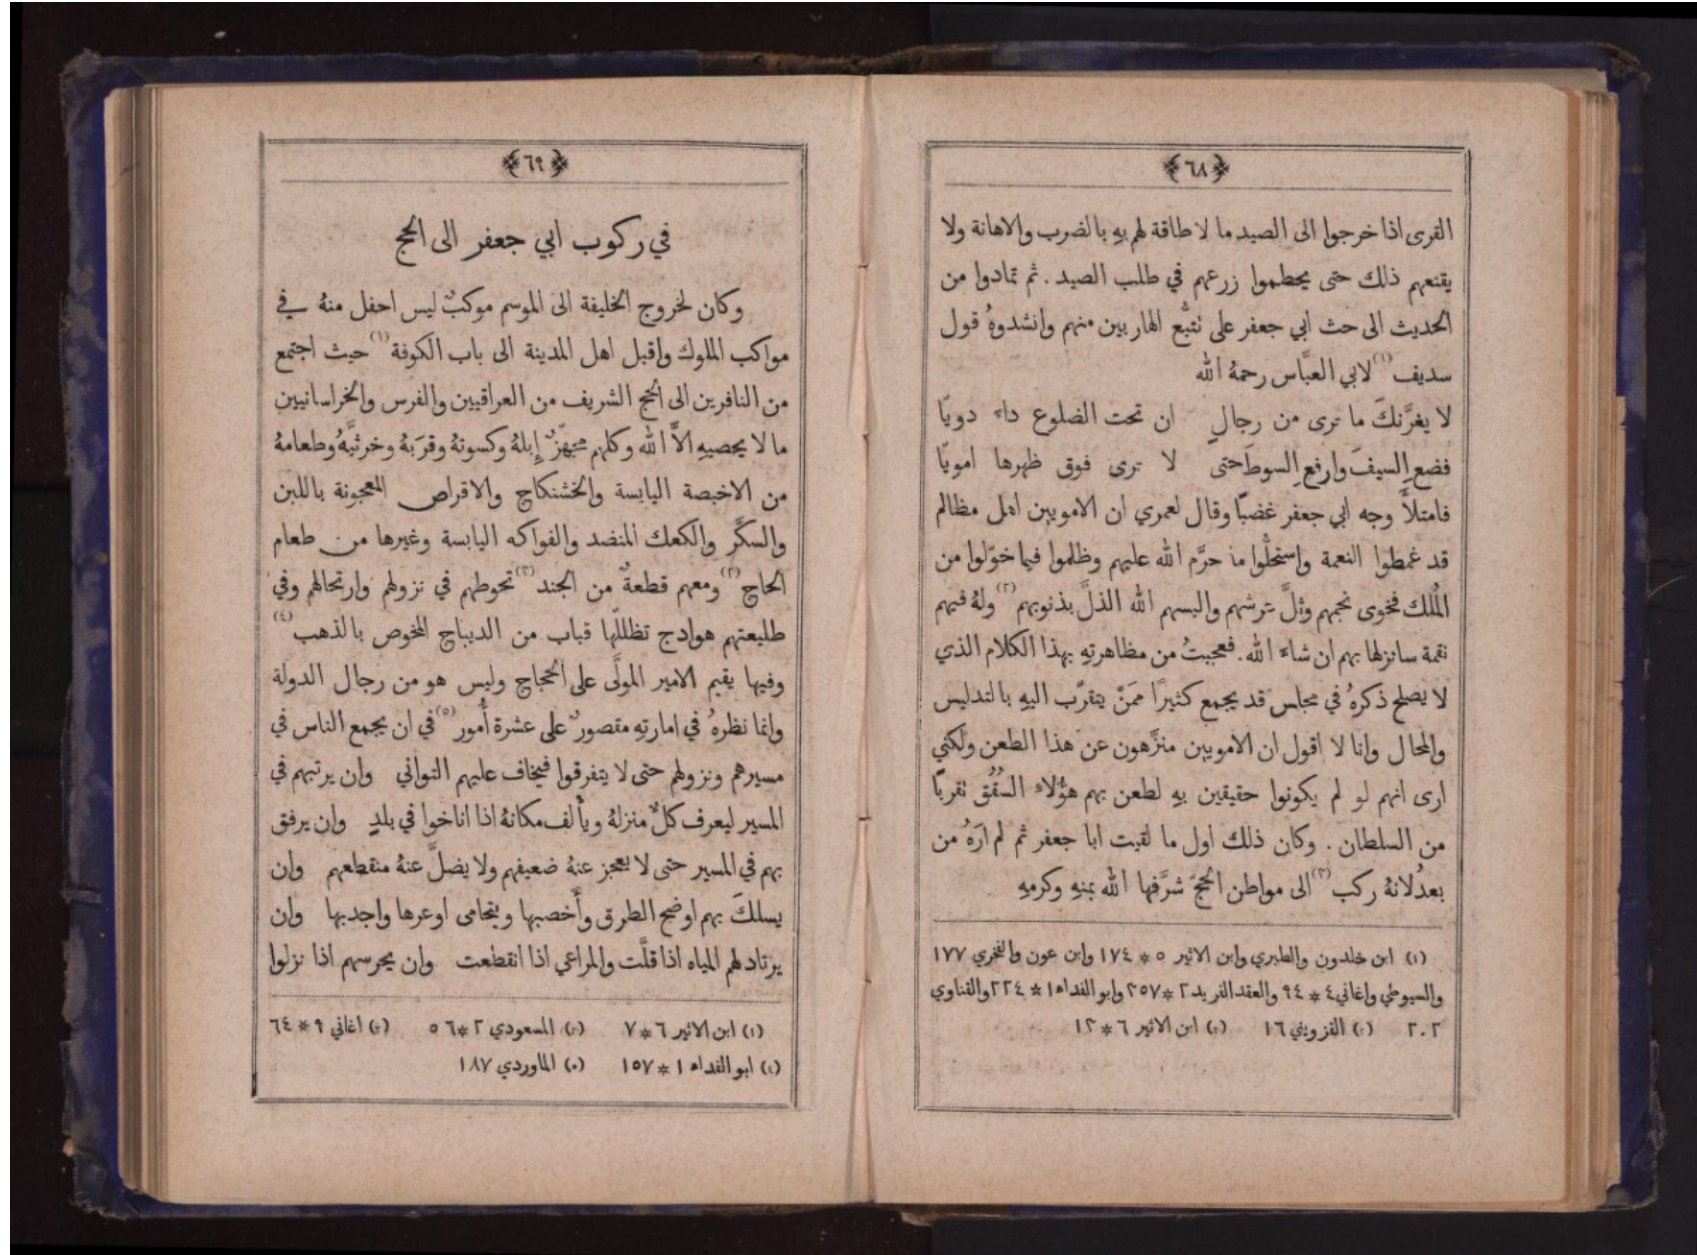 ﴿٦٨﴾
القرى اذا خرجوا الى الصيد ما لا طاقة لهم بهِ بالضرب والاهانة ولا
يقنعهم ذلك حتى يحطموا زرعهم في طلب الصيد . ثم تمادوا من
الحديث الى حث ابي جعفر على نتبُّع الهاربين منهم وانشدوهُ قول
سديف(١) لابي العبَّاس رحمهُ الله
لا يغرَّنكَ ما ترى من رجالٍ ان تحت الضلوع داء دويَّا
فضع السيفَ وارفعِ السوطَ حتى لا ترى فوق ظهرها امويَّا
فامتلأَ وجه ابي جعفر غضبًا وقال لعمري ان الامويين اهل مظالم
قد غمطوا النعمة واستحلُّوا ما حرَّم الله عليهم وظلموا فيما خوّلوا من
المُلك فخوى نجمهم وثلَّ عرشهم والبسهم الله الذلَّ بذنوبهم(٢) ولهُ فيهم
نقمة سانزلها بهم ان شاء الله . فعجبتُ من مظاهرتهِ بهذا الكلام الذي
لا يصلح ذكرهُ في مجلس قد يجمع كثيرًا ممَنْ يتقرَّب اليهِ بالتدليس
والمحال وانا لا اقول ان الامويين منزَّهون عن هذا الطعن ولكني
ارى انهم لو لم يكونوا حقيقين بهِ لطعن بهم هؤُلاء السُّفُق نقربًا
من السلطان . وكان ذلك اول ما لقيت ابا جعفر ثم لم ارَهُ من
بعدُ لانهُ ركب(٣) الى مواطن الحجّ شرَّفها الله بمنهِ وكرمهِ
(١) ابن خلدون والطبري وابن الاثير ٥ * ١٧٤ وابن عون والفخري ١٧٧
والسيوطي واغاني ٤ * ٩٤ والعقد الفريد ٢ * ٣٥٧ وابو الفداء ١ * ٢٢٤ والقناوي
٢٠٢ (٢) القزويني ١٦ (٣) ابن الاثير ٦ * ١٣
﴿٦٩﴾
في ركوب ابي جعفر الى الحج
وكان لخروج الخليفة الى الموسم موكبٌ ليس احفل منهُ في
مواكب الملوك واقبل اهل المدينة الى باب الكوفة(١) حيث اجتمع
من النافرين الى الحج الشريف من العراقيين والفرس والخراسانيين
ما لا يحصيهِ الاَّ الله وكلهم مجهّزٌ إِبلهُ وكسوتهُ وقرَبهُ وخرثيَّهُ وطعامهُ
من الاخبصة اليابسة والخشنكاج والاقراص المعجونة باللبن
والسكَّر والكعك المنضد والفواكه اليابسة وغيرها من طعام
الحاج(٢) ومعهم قطعةٌ من الجند(٣) تحوطهم في نزولهم وارتحالهم وفي
طليعتهم هوادج تظللّها قباب من الديباج المخوص بالذهب(٤)
وفيها يقيم الامير المولَّى على الحجاج وليس هو من رجال الدولة
وانما نظرهُ في امارتهِ مقصورٌ على عشرة أُمور(٥) في ان يجمع الناس في
مسيرهم ونزولهم حتى لا يتفرقوا فيخاف عليهم التواني وان يرتبهم في
المسير ليعرف كلٌّ منزلهُ ويأْلف مكانهُ اذا اناخوا في بلدٍ وان يرفق
بهم في المسير حتى لا يعجز عنهُ ضعيفهم ولا يضلَّ عنهُ منقطعهم وان
يسلكَ بهم اوضح الطرق وأَخصبها ويتحامى اوعرها واجدبها وان
يرتاد لهم المياه اذا قلَّت والمراعي اذا انقطعت وان يحرسهم اذا نزلوا
(١) ابن الاثير ٦ * ٧ (٢) المسعودي ٢ * ٥٦ (٣) اغاني ٩ * ٦٤
(٤) ابو الفداء ١ * ١٥٧ (٥) الماوردي ١٨٧